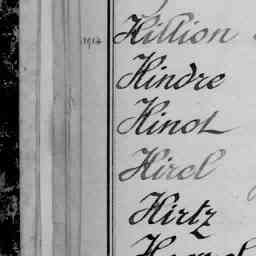 1914 Hillion
Hindre
Hinot
Hirel
Hirtz